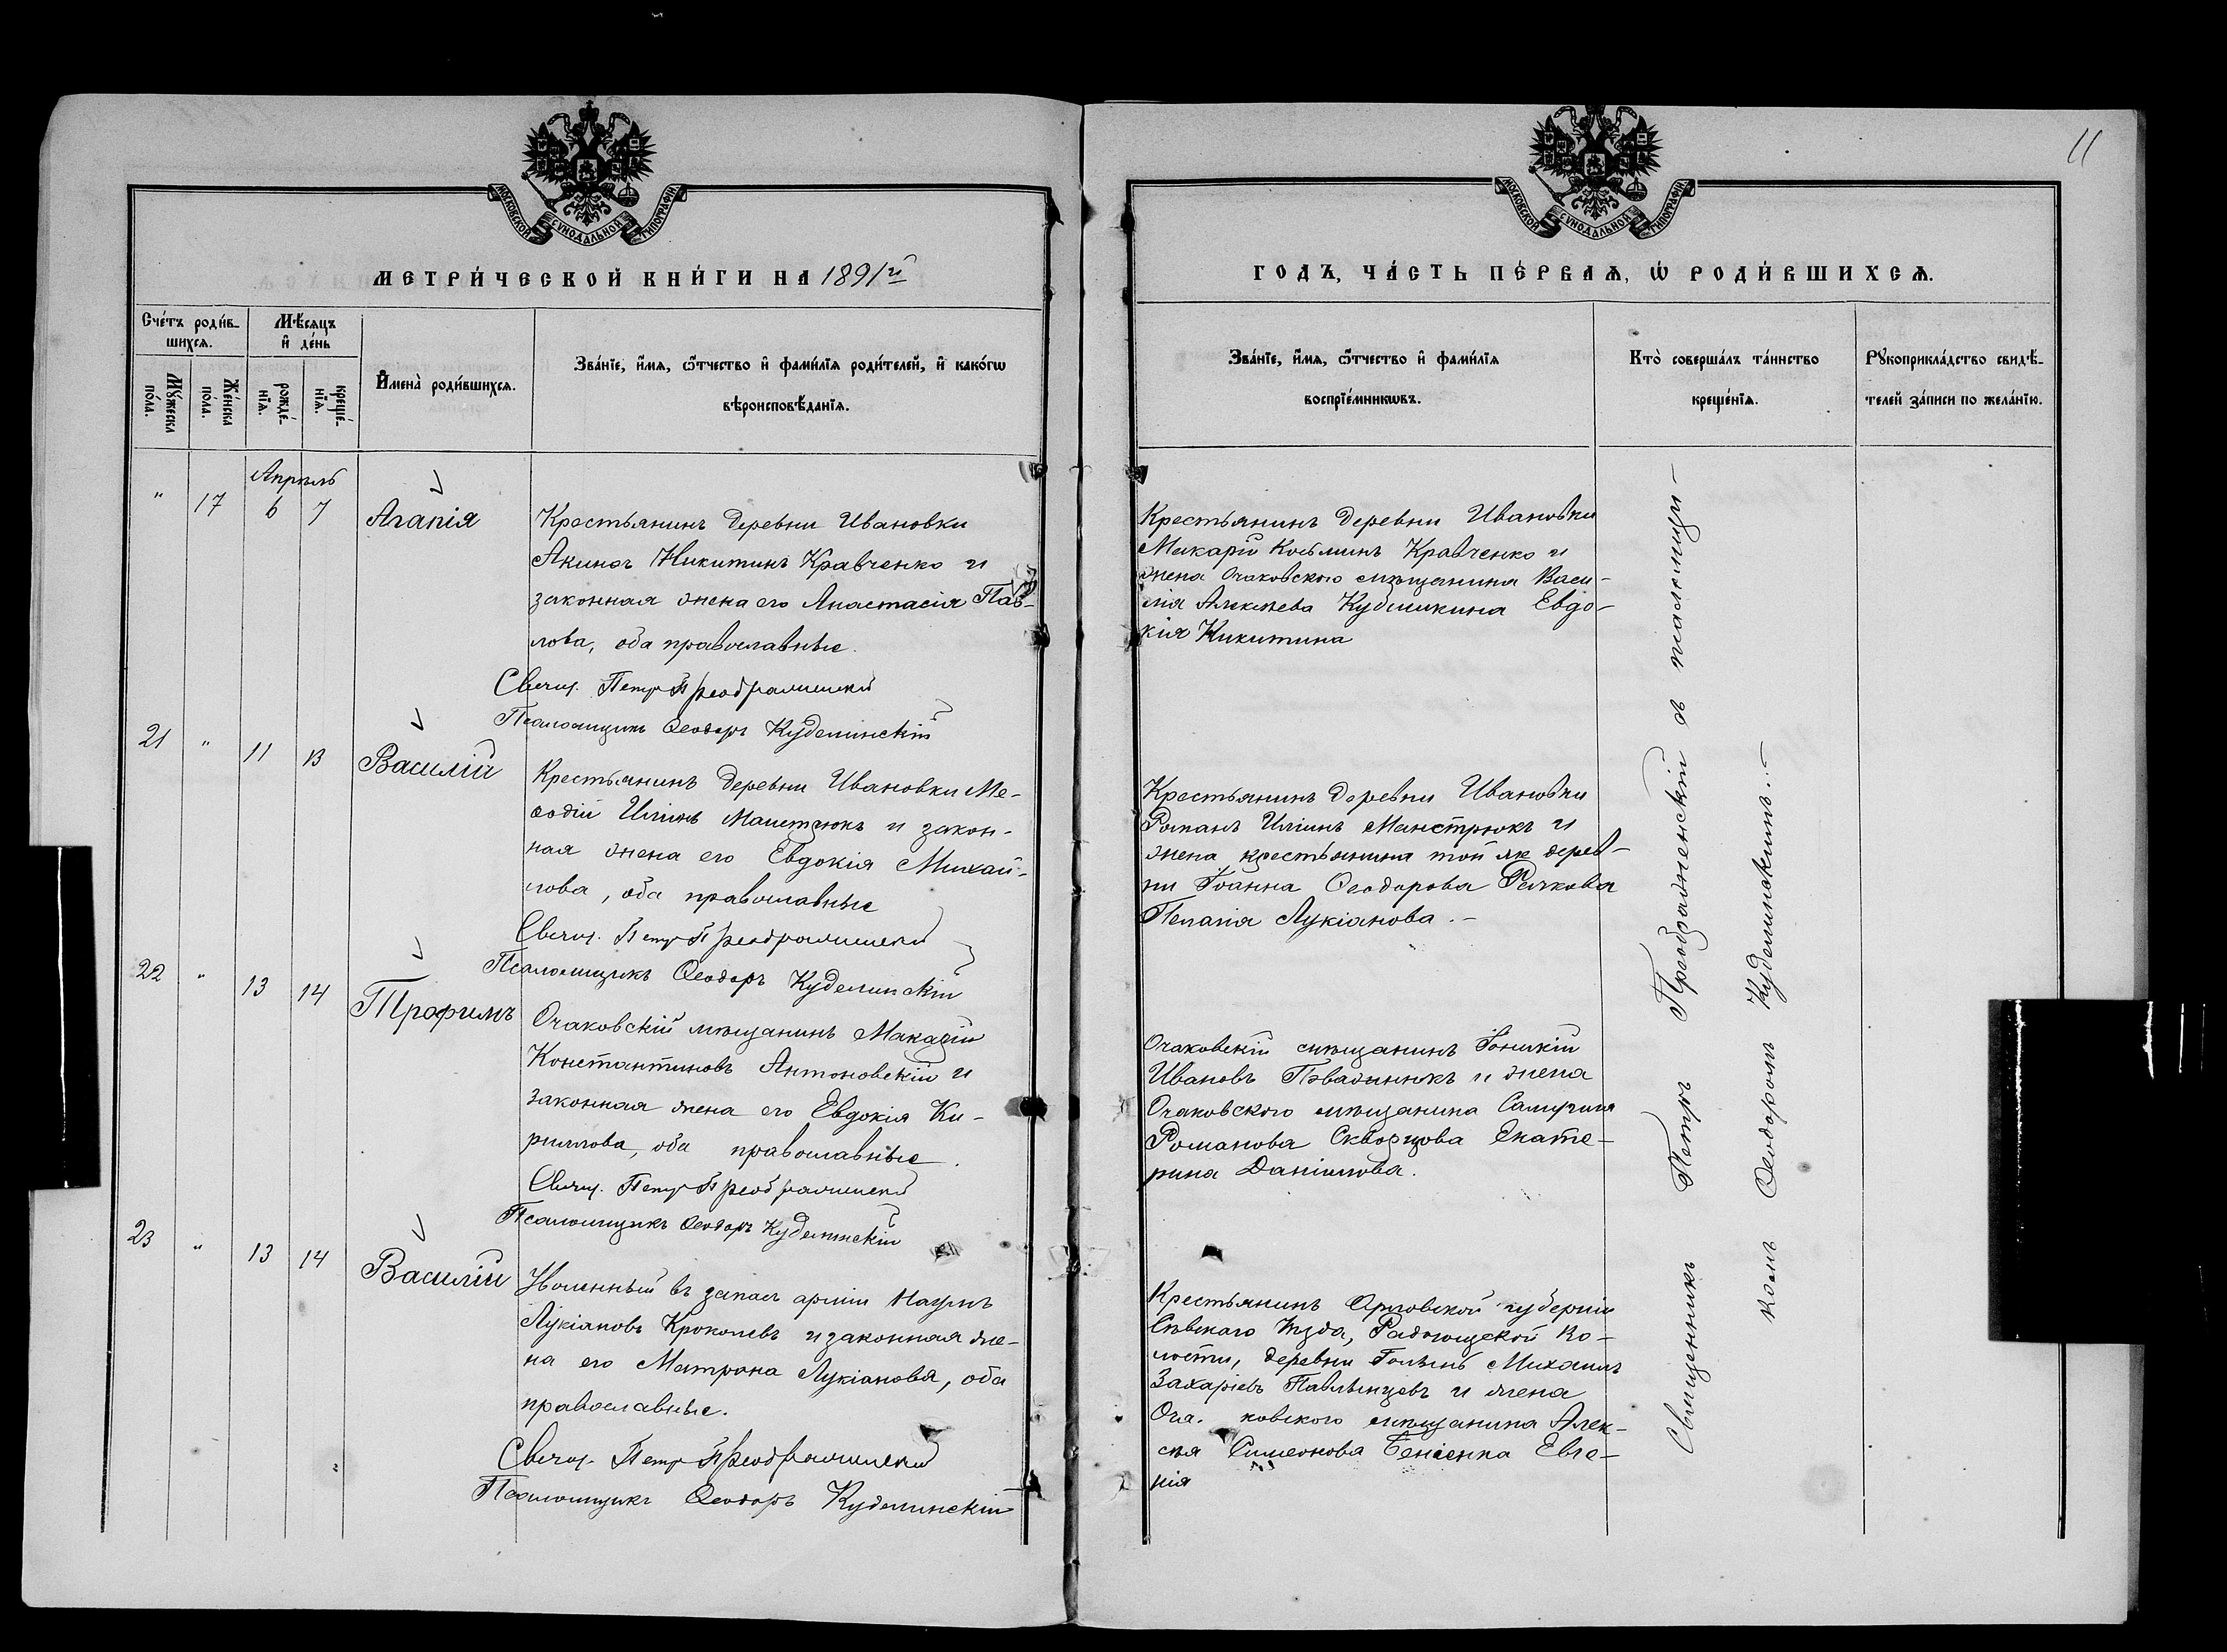 11
МОСКОВСКОЙ СѴНОДАЛЬНОЙ ТИПОГРАФІИ
МЕТРИ́ЧЕСКОЙ КНИ́ГИ НА 1891й
Сче́тъ роди́в-
шихсѧ.
Мѣ́сѧцъ
и҆ де́нь
Мꙋ́жеска
по́ла.
Же́нска
по́ла.
рожде́-
нїѧ.
креще́-
нїѧ.
И҆мена̀ роди́вшихсѧ.
Зва́нїе, и҆́мѧ, ѻ҆́тчество и҆ фами́лїѧ роди́телей, и҆ како́гѡ
вѣроисповѣ́данїѧ.
Апрѣль
" 17 6 7 Агапія
Крестьянинъ деревни Ивановки
Акимъ Никитинъ Кравченко и
законная жена его Анастасія Пав-
лова, оба православные.
Свящ. Петръ Преображенскій
Псаломщикъ Ѳеодоръ Куделинскій
21 " 11 13 Василій
Крестьянинъ деревни Ивановки Ме-
ѳодій Иліинъ Манстрюкъ и закон-
ная жена его Евдокія Михаи-
лова, оба православные
Свящ. Петръ Преображенскій
Псаломщикъ Ѳеодоръ Куделинскій
22 " 13 14 Трофимъ
Очаковскій мѣщанинъ Макарій
Константиновъ Антоновскій и
законная жена его Евдокія Ки-
риллова, оба православные.
Свящ. Петръ Преображенскій
Псаломщикъ Ѳеодоръ Куделинскій
23 " 13 14 Василій
Уволенный въ запасъ арміи Наумъ
Лукіановъ и законная же-
на его Матрона Лукіанова, оба
православные.
Свящ. Петръ Преображенскій
Псаломщикъ Ѳеодоръ Куделинскій
МОСКОВСКОЙ СѴНОДАЛЬНОЙ ТИПОГРАФІИ
ГОДЪ, ЧА́СТЬ ПЕ́РВАѦ, Ѡ҆ РОДИ́ВШИХСѦ.
Зва́нїе, и҆́мѧ, ѻ҆́тчество и҆ фами́лїѧ
воспрїе́мникѡвъ.
Кто̀ соверша́лъ та́инство
креще́нїѧ.
Рꙋкоприкла́дство свидѣ́-
телей за́писи по жела́нїю.
Крестьянинъ деревни Ивановки
Макарій Косьминъ Кравченко и
жена Очаковскаго мѣщанина Васи-
лія Алексѣева Кудишкина Евдо-
кія Никитина
Крестьянинъ деревни Ивановки
Романъ Иліинъ Манстрюкъ и
жена крестьянина той же дерев-
ни Іоанна Ѳеодорова
Пелагія Лукіанова.-
Очаковскій мѣщанинъ Іоникій
Ивановъ и жена
Очаковского мѣщанина
Романова Скворцова Екате-
рина Даніилова.
Крестьянинъ Орловской губерніи
Сѣвскаго Уѣзда, Радогощской Во-
лости, деревни Михаилъ
Захаріевъ и жена
Оча. ковского мѣщанина Алек-
сѣя Симеонова Евге-
нія
Священникъ Петръ Преображенскій съ псаломщи-
комъ Ѳеодоромъ Куделинскимъ.-